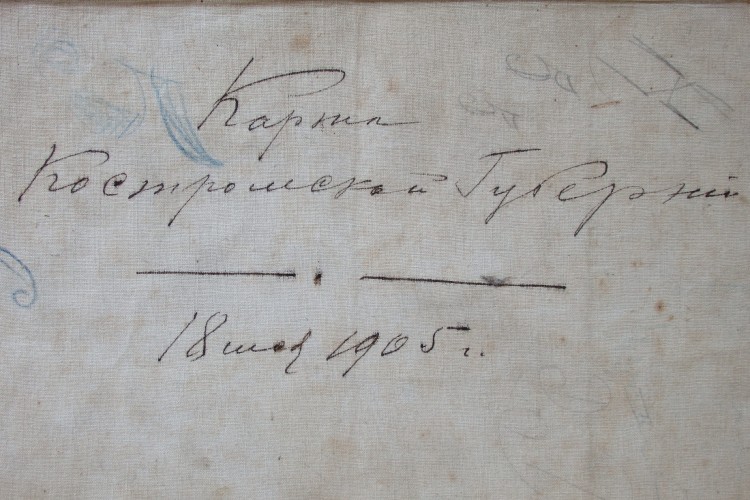 Карта
Костромской Губерніи
18 мая 1905 г.